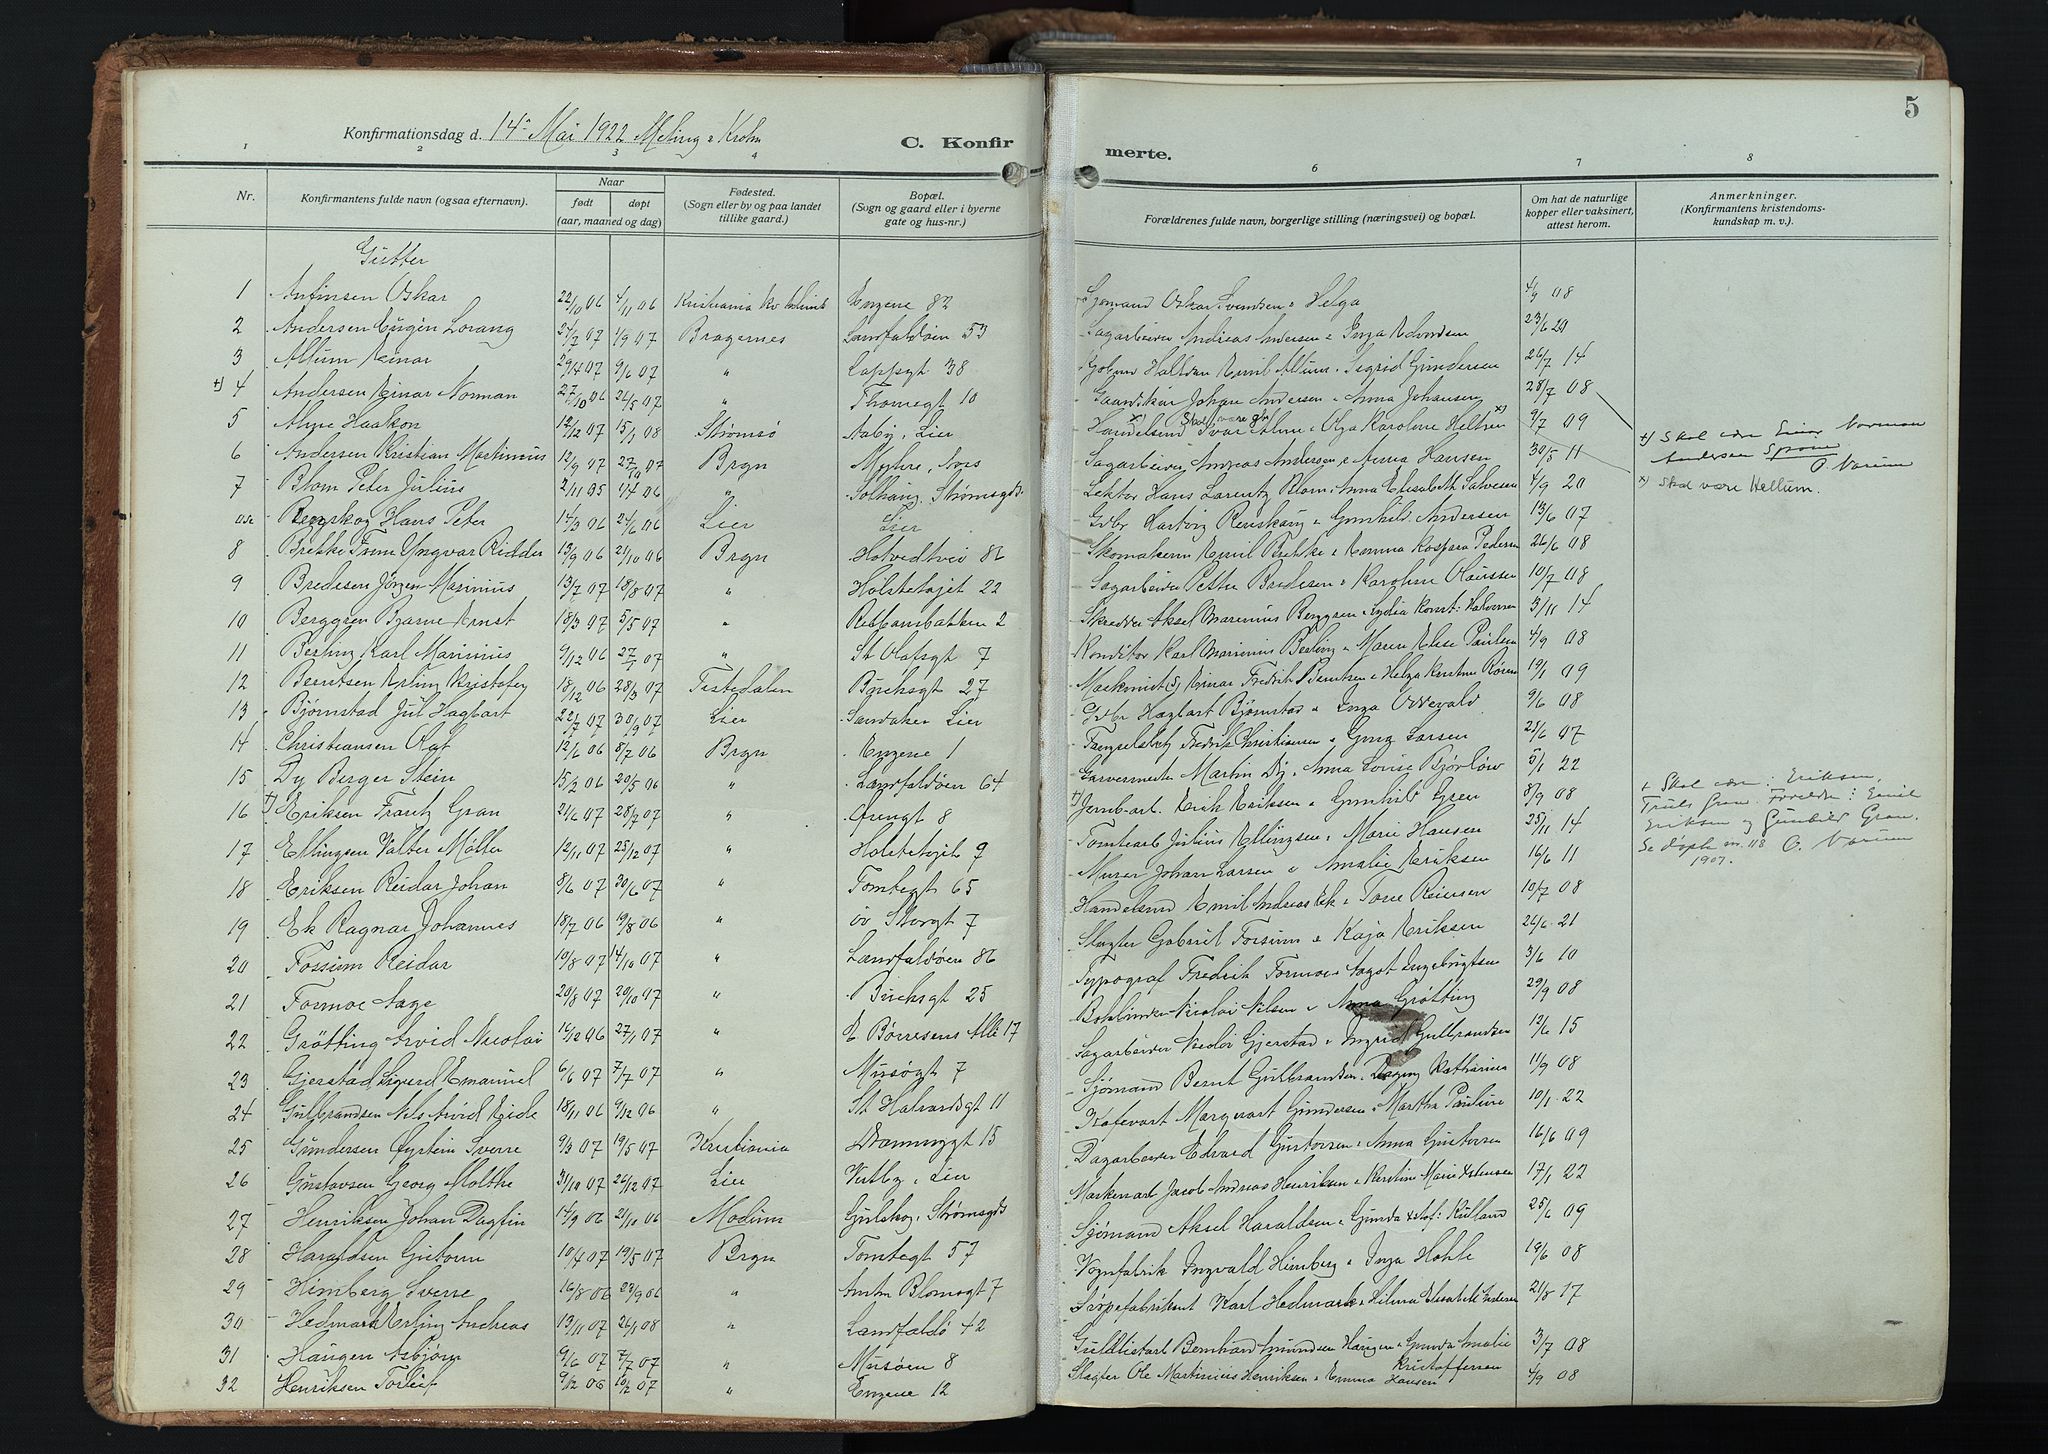 5
Konfirmationsdag d. 14de Mai 1922 Meling & Krohn
C. Konfirmerte.
1 2 3 4 6 7 8
Nr.
Konfirmantens fulde navn (ogsaa efternavn).
Naar
født døpt
(aar, maaned og dag)
Fødested.
(Sogn eller by og paa landet
tillike gaard.)
Bopæl.
(Sogn og gaard eller i byerne
gate og hus-nr.)
Forældrenes fulde navn, borgerlige stilling (næringsvei) og bopæl.
Om hat de naturlige
kopper eller vaksinert,
attest herom.
Anmerkninger.
(Konfirmantens kristendoms-
kundskap m. v.).
Gutter
1 Anfinsen Oskar 22/10 06 4/11 06 Kristiania Engene 82 Sjømand Oskar Svendsen & Helga 4/9 08
2 Andersen Eugen Lorang 07 1/9 07 Bragernes Landfaldøen 53 Sagarbeider Andreas Andersen & Inga Edvardsen 23/6 20
3 Allum Einar 29/4 07 9/6 07 " Cappgt 38 Halvdan Emil Allum & Sigrid Gundersen 26/7 14
+) 4 Andersen Einar Norman 27/10 06 26/5 07 " Thomegt 10 Johan Andersen & Anna Johansen 28/7 08
5 Haakon 12/12 07 15/1 08 Strømsø Aaby, Lier Skal være Ivar & Olga Karoline x) 9/7 09
6 Andersen Kristian Martinius 12/9 07 27/10 07 Brgn Myhre, Aros Sagarbeider Andreas Andersen & Anna Hansen 30/5 11
7 Blom Peter Julius 2/11 05 1/4 06 " Solhaug, Strømsgds Lektor Hans Lorentz Blom & Anna Elisabeth Salvesen 4/9 20
Renskog Hans Peter 14/3 06 24/6 06 Lier Lier Gdbr Hartvig & Gunhild Andersen 13/6 07
8 Brekke Finn Yngvar Ridder 13/9 06 21/10 06 Brgn Hotvedtvei 86 Skomakerm Emil Brekke & Emma Pedersen 26/6 08
9 Bredesen Jörgen Marinius 13/7 07 18/8 07 " Holstetøjet 22 Sagarbeider Petter Bredesen & Karoline Olaussen 10/7 08
10 Berggren Bjarne Ernst 18/3 07 5/5 07 " 2 Skredder Aksel Marinius Berggren & Lydia Konst: Halvorsen 3/11 14
11 Berling Karl Marinius 9/12 06 27/1 07 " St Olafsgt 7 Konditor Karl Marinius Berling & Maren Elise Paulsen 4/9 08
12 Berntsen Erling Kristofer 18/12 06 28/3 07 Tistedalen Buchsgt 27 Maskinist Einar Fredrik Berntsen & Helga Kirstine 19/1 09
13 Bjørnstad Jul Hagbart 07 07 Lier Sandaker Lier Gdbr Hagbart Bjørnstad & Inga Oddevald 9/6 08
14 Christiansen Olaf 12/6 06 8/7 06 Brgn Engene 1 Fredrik Christiansen & Larsen 25/6 07
15 Dy Berger Stein 15/2 06 20/5 06 " Landfaldøen 64 Garvermester Martin Dy & Anna Lovise 5/1 22
16 +) Eriksen Frantz Gran 21/6 07 28/7 07 " Örengt 8 +) Jernbarb. Erik Eriksen & Gunhild Gren 8/9 08
17 Ellingsen Valter Möller 12/11 07 25/12 07 " Holstetøjet 9 Tomtearb Julius Ellingsen & Marie Hansen 25/11 14
18 Eriksen Reidar Johan 8/6 07 30/6 07 " Tomtegt 65 Murer Johan Larsen & Amalie Eriksen 16/6 11
19 Ek Ragnar Johannes 18/7 06 19/8 06 " öv Storgt 7 Handelsmd Emil Andreas Ek & Tora Reiersen 10/7 08
20 Fossum Reidar 10/8 07 14/10 07 " Landfaldøen 86 Slagter Gabriel Forsum & Kaja Eriksen 26/6 21
21 Formoe Aage 20/8 07 20/10 07 " Buchsgt 25 Typograf Fredrik Formoe & Aagot Ingebrigtsen 3/6 10
22 Grötting Arvid Nicolai 16/12 06 27/1 07 " E Børresens Allé 17 Nicolai Nilsen & Anna Grötting 29/9 08
23 Gjerstad Sigurd Emanuel 6/6 07 7/7 07 " Musøgt 7 Sagarbeider Gjerstad & Ingrid Gulbrandsen 12/6 15
24 Gulbrandsen Nils Arvid Eide 18/11 06 9/12 06 " St Halvardsgt 11 Sjømand Bernt Gulbrandsen & Dagny Katharina 11/9 08
25 Gundersen Øystein Sverre 9/3 07 19/5 07 Kristiania Dronninggt 15 Kafevært Marqvart Gundersen & Martha Pauline 10/1 22
26 Gustavsen Georg Molthe 31/10 07 26/12 07 Lier Vitby, Lier Dagarbeider Edvard Gustavsen & Anna Gustavsen 16/6 09
27 Henriksen Johan Dagfin 14/9 06 21/10 06 Modum Gulskog, Strømsgds Jacob Andreas Henriksen & Kirstine Marie 17/1 22
28 Haraldsen Gustav 10/4 07 19/5 07 Brgn Tomtegt 57 Sjømand Aksel Haraldsen & Gunda 25/6 09
29 Himberg Sverre 16/8 06 23/9 06 " Anton Blomsgt 7 Vognfabrik Ingvald Himberg & Inga Hohle 19/6 08
30 Hedmark Erling Andreas 13/11 07 26/1 08 " Landfaldö 42 Karl Hedmark & Hilma Elisabeth 21/8 17
31 Haugen Asbjørn 9/6 07 7/7 07 " Musøen 8 Guldlistarb Bernhard Amundsen Haugen & Gunda Amalie Kristoffersen 3/7 08
32 Henriksen Torleif 9/12 06 10/2 07 " Engene 12 Slagter Ole Martinius Henriksen & Emma Hansen 4/9 08
+) Skal være Einar Norman
Andersen Sporn
O. Norum
x) Skal være Hellum.
+ Skal være: Eriksen,
Truls Gran. Foreldre: Emil
Eriksen og Gunhild Gran.
Se døpte nr. 118 O. Norum
1907.